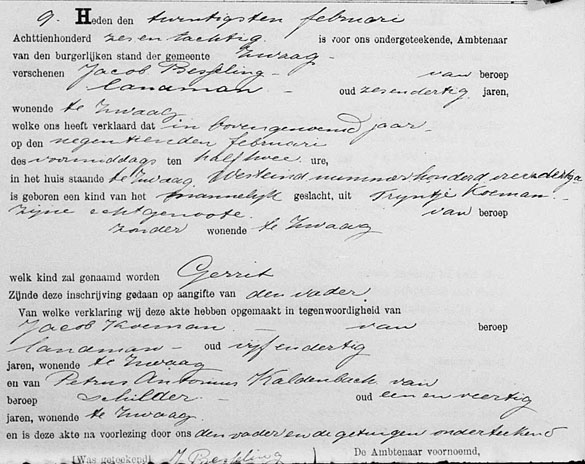 9. Heden den twintigsten februari
Achttienhonderd zesentachtig. is voor ons ondergeteekende, Ambtenaar
van den burgerlijken stand der gemeente Zwaag
verschenen Jacob Besseling van beroep
landman oud zesendertig jaren,
wonende te Zwaag
welke ons heeft verklaard dat in bovengenoemd jaar
op den negentienden februari
des voormiddags ten half twee ure,
in het huis staande te Zwaag Westeind nummer honderd
is geboren een kind van het mannelijk geslacht, uit Tryntje Koeman
zijne echtgenoote. van beroep
zonder wonende te Zwaag
welk kind zal genaamd worden Gerrit
Zijnde deze inschrijving gedaan op aangifte van den vader.
Van welke verklaring wij deze akte hebben opgemaakt in tegenwoordigheid van
Jacob Koeman van beroep
landman oud vijfendertig
jaren, wonende te Zwaag
en van Petrus Antonius Kaldenbach van
beroep schilder oud een en veertig
jaren, wonende te Zwaag
en is deze akte na voorlezing door ons den vader en de getuigen onderteekend
(Was geteekend) J Besseling De Ambtenaar voornoemd,